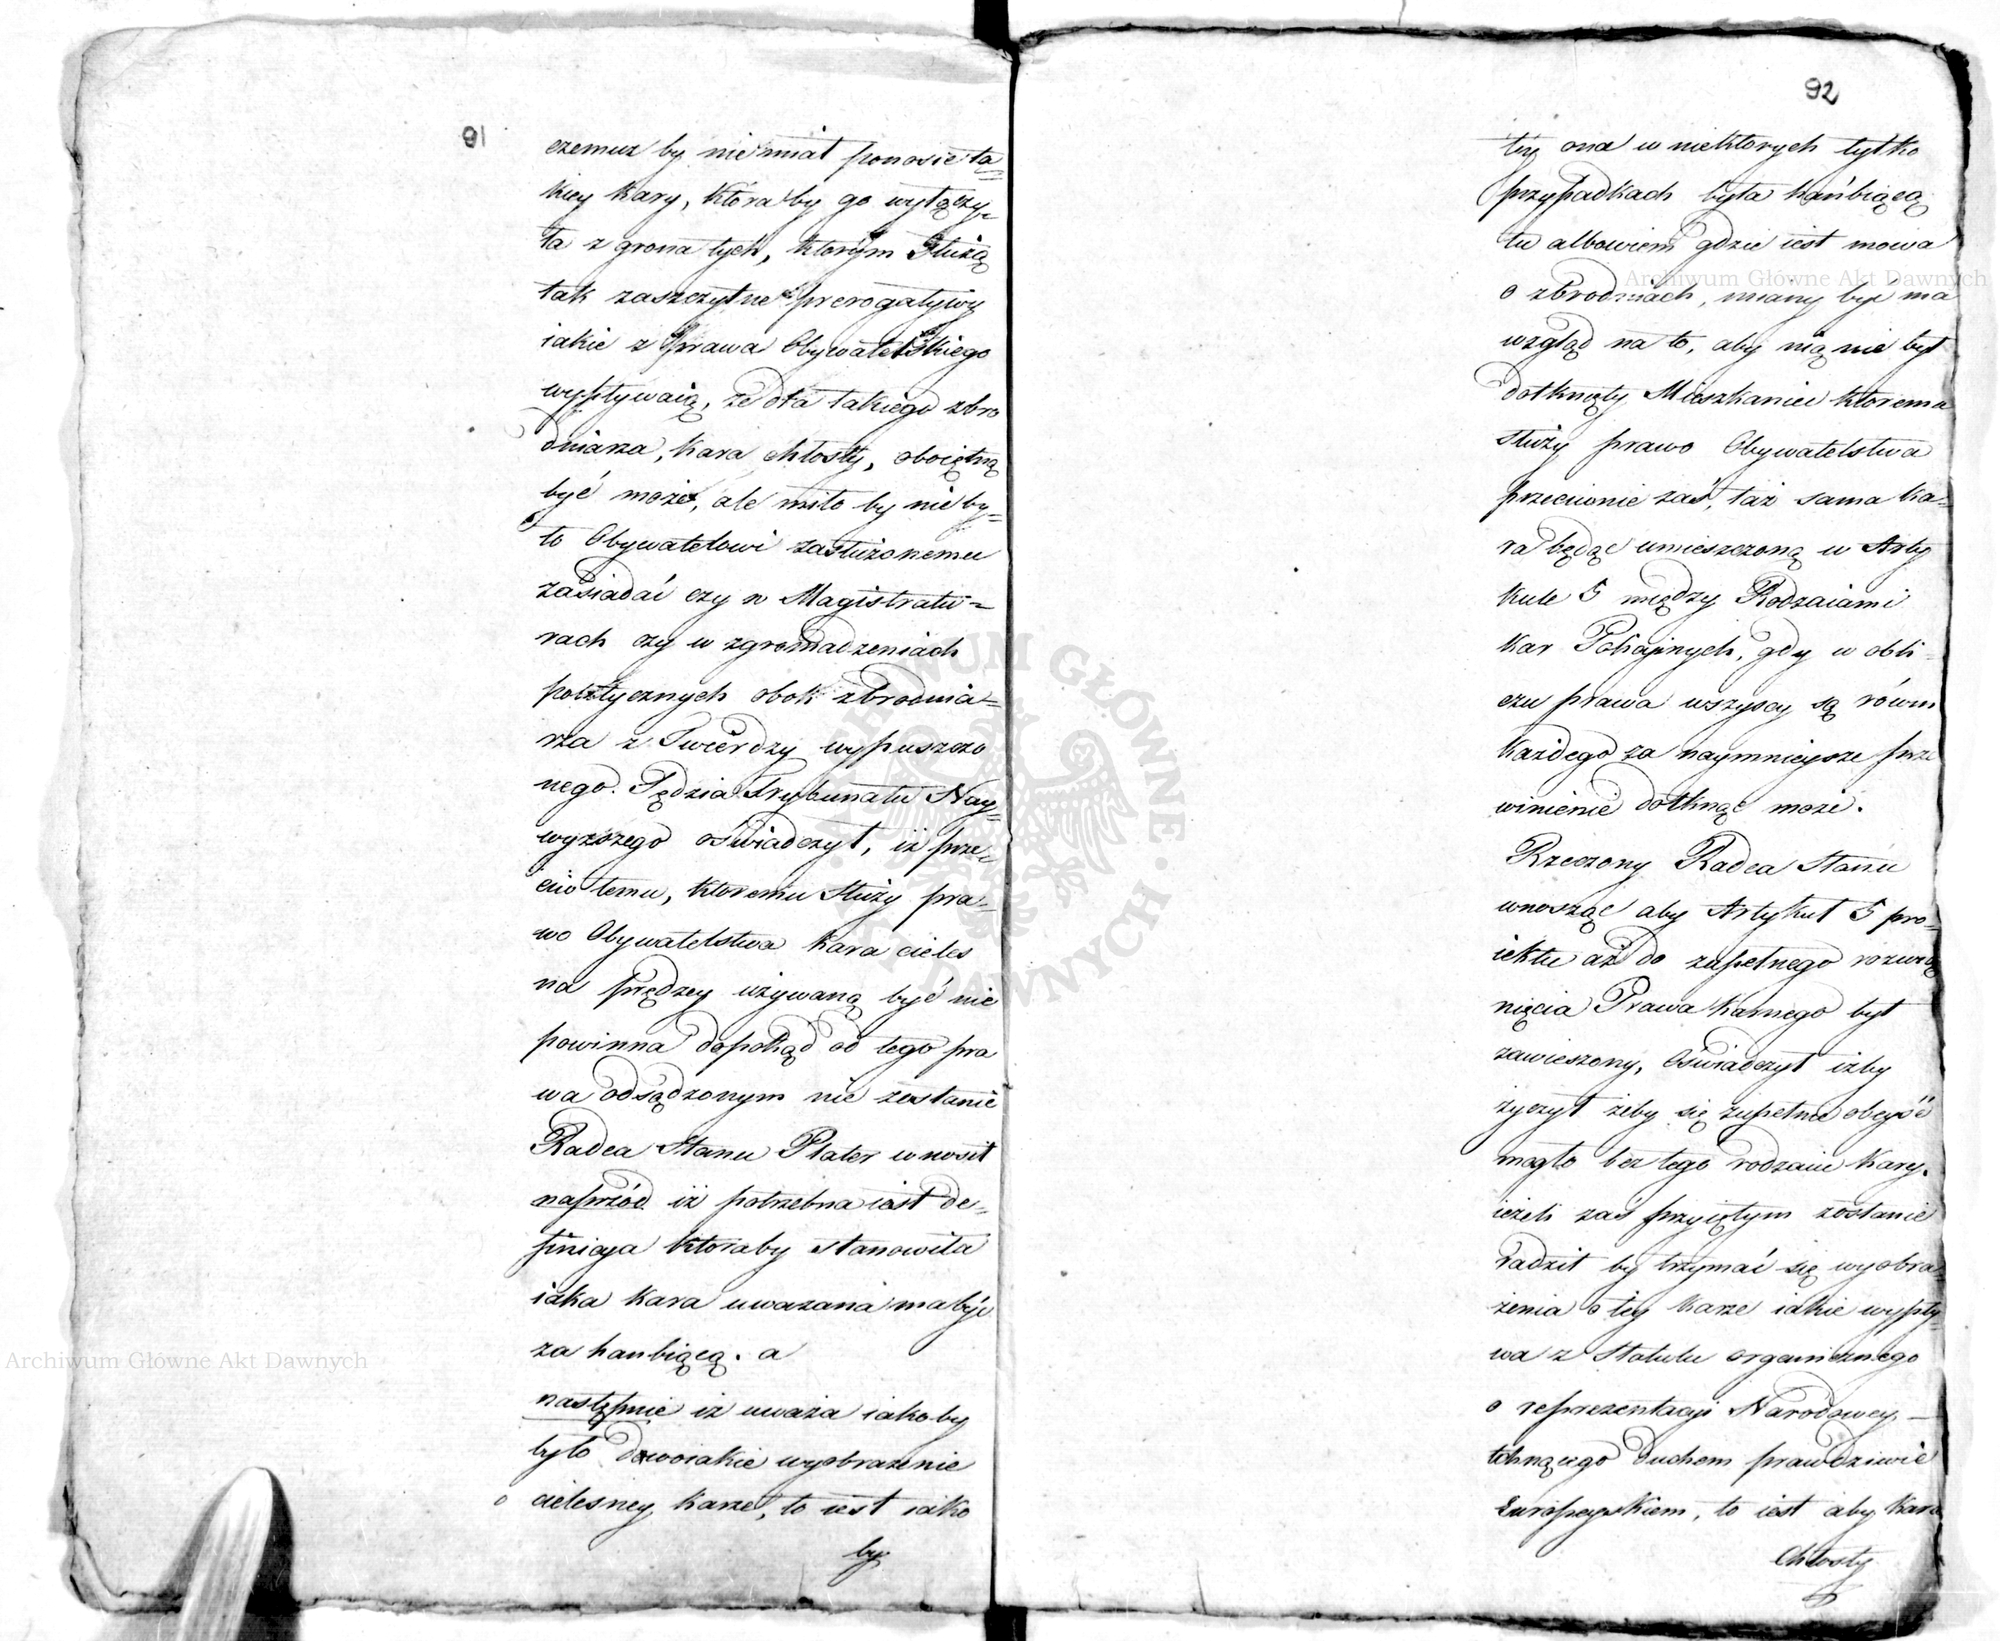 91
czemuż by nie miał ponosić ta=
kiey kary, któraby go wyłączy=
ła z grona tych, którym służą
tak zaszczytne prerogatywy
iakie z Prawa Obywatelskiego
wypływaią, że dla takiego zbro
dniarza, kara chłosty, oboiętną
być może, ale miło by nie by=
ło Obywatelowi zasłużonemu
zasiadać czy w Magistratu=
rach czy w zgromadzeniach
politycznych obok zbrodnia=
rza z Twierdzy wypuszczo
nego. Sędzia Trybunału Nay=
wyższego oświadczył, iż prze=
ciw temu, któremu służy pra=
wo Obywatelstwa kara cieles
na prędzey używaną być nie
powinna dopokąd od tego pra
wa odsądzonym nie zostanie
Radca Stanu Plater wnosił
naprzód iż potrzebna iest de=
finicya któraby stanowiła
iaka kara uważana ma być
za hanbiącą. a
następnie iż uważa iakoby
było dwoiakie wyobrażenie
o cielesney karze, to iest iako
by
92
tey ona w niektorych tylko
przypadkach była hańbiącą
tu albowiem gdzie iest mowa
o zbrodniach, miany być ma
wzgląd na to, aby nią nie był
dotknięty Mieszkaniec któremu
służy prawo Obywatelstwa
przeciwnie zaś, taż sama ka=
ra będąc umieszczoną w Arty
kule 5 między Rodzaiami
kar Policyinych, gdy w obli=
czu prawa wszyscy są równi
każdego za naymnieysze prze
winienie dotknąć może.
Rzeczony Radca Stanu
wnosząc aby Artykuł 5 pro=
iektu aż do zupełnego rozwi
nięcia Prawa karnego był
zawieszony, Oświadczył iżby
życzył żeby się zupełnie obeyść
mogło bez tego rodzaiu kary.
ieżeli zaś przyiętym zostanie
radził by trzymać się wyobra=
żenia o tey karze iakie wypły=
wa z Statutu organicznego
o reprezentacyi Narodowey —
tchnącego duchem prawdziwie
Europeyskiem, to iest aby kara
Chłosty
Archiwum Główne Akt Dawnych
Archiwum Główne Akt Dawnych
ARCHIWUM GŁÓWNE · AKT DAWNYCH ·